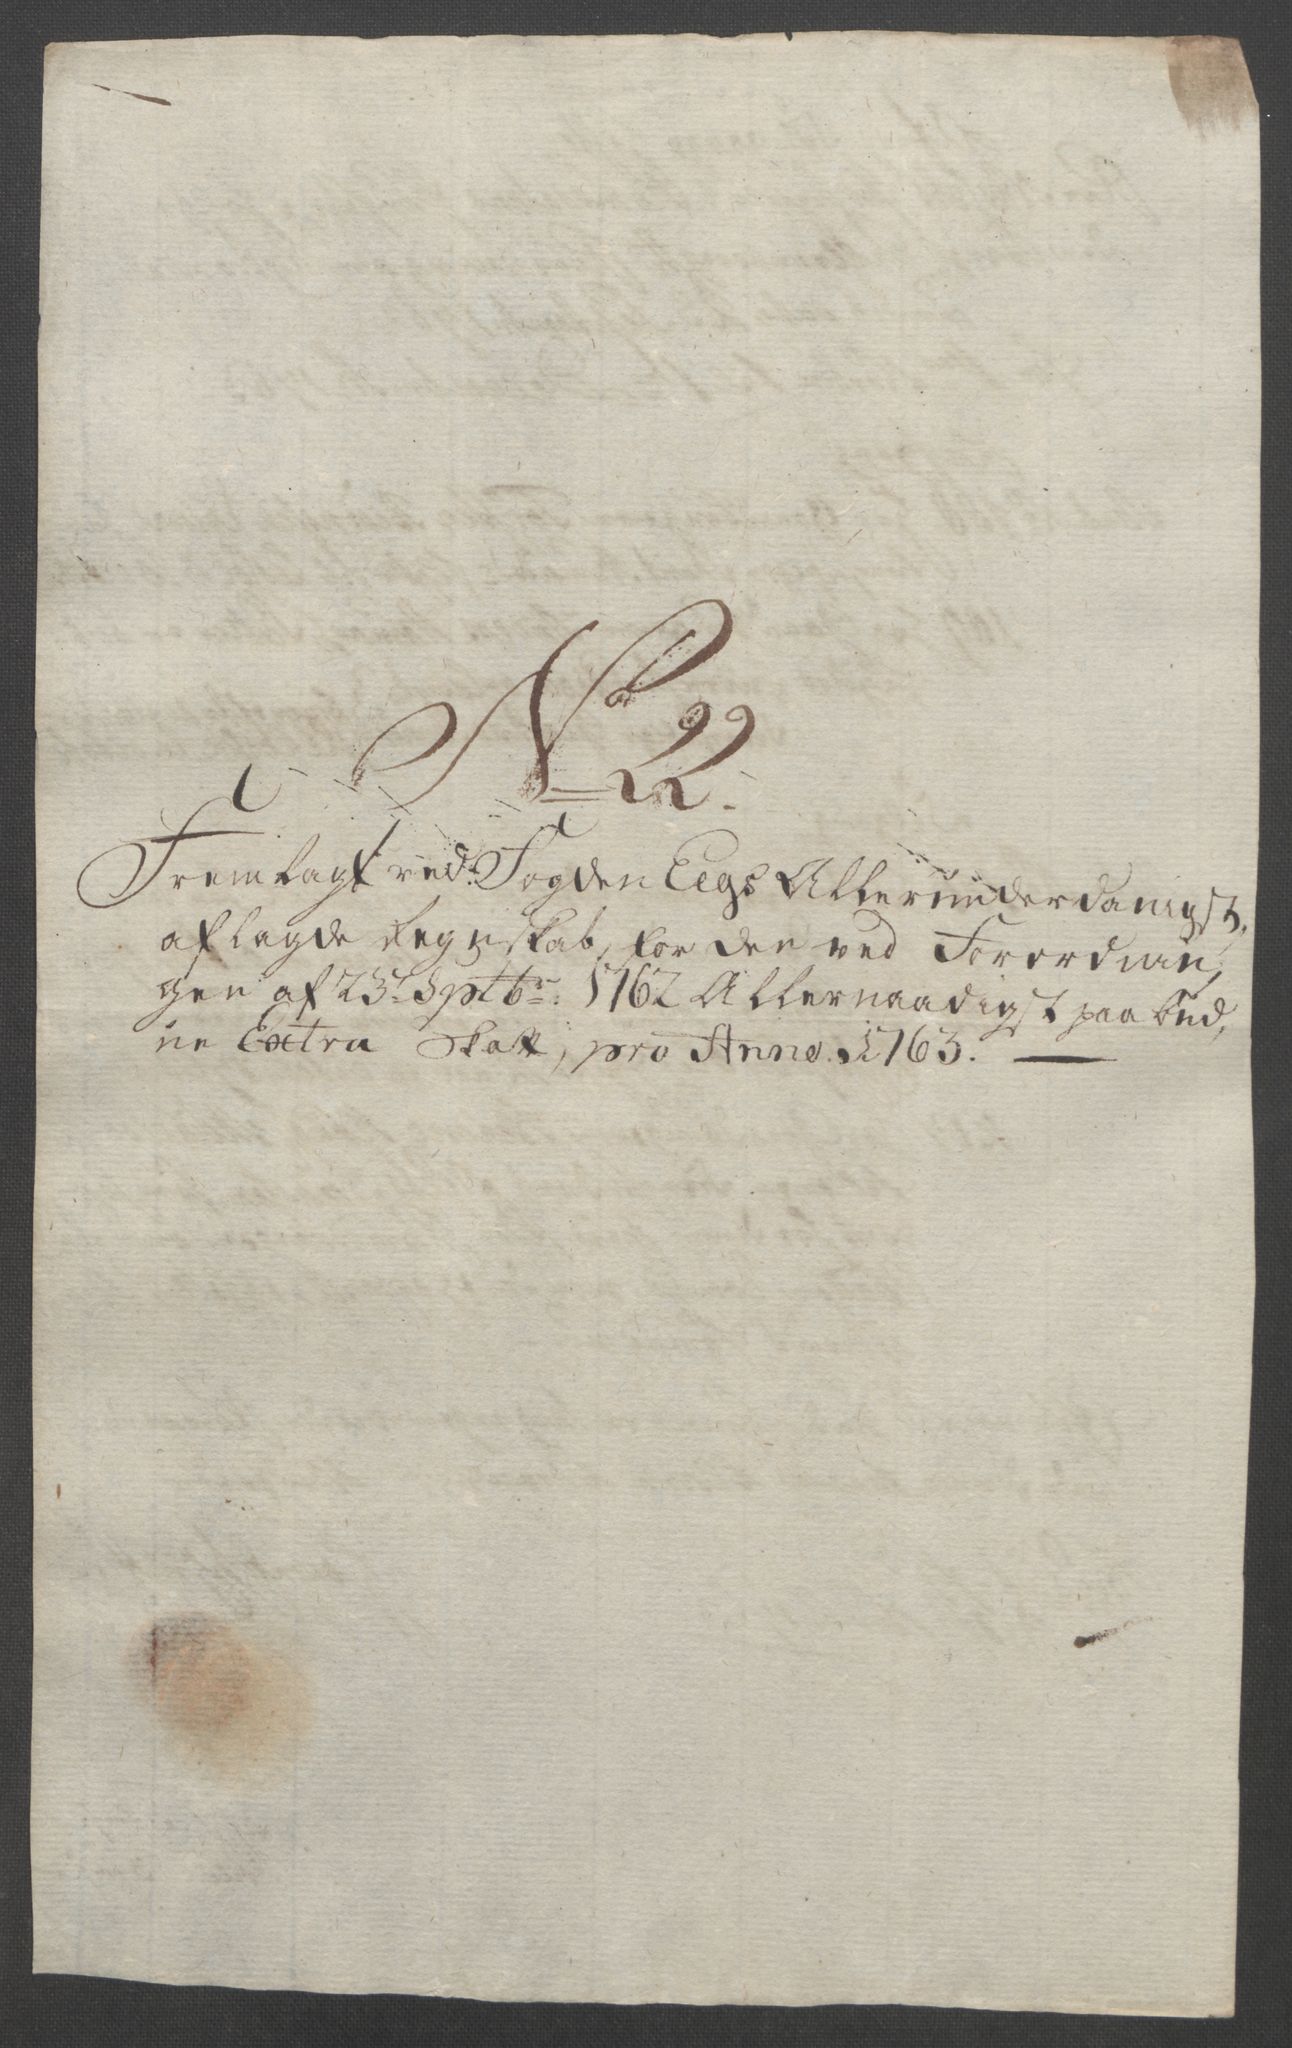 N 22.
Fremlagt ved Fogden Eegs Allerunderdanigst,
aflagde Regnskab, for den ved Forordnin,
gen af 23de Sptbr: 1762 Allernaadigst paabud,
ne Extra Skatt, pro Anno. 1763.